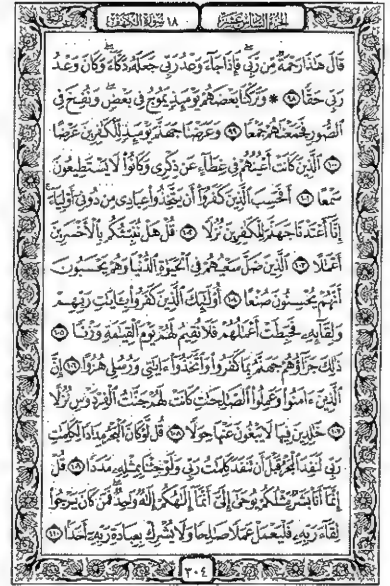 الجزء السادس عشر
١٨ سورة الكهف
قَالَ هَٰذَا رَحْمَةٌ مِّن رَّبِّي ۖ فَإِذَا جَآءَ وَعْدُ رَبِّي جَعَلَهُۥ دَكَّآءَ ۖ وَكَانَ وَعْدُ
رَبِّي حَقًّا ٩٨ * وَتَرَكْنَا بَعْضَهُمْ يَوْمَئِذٍ يَمُوجُ فِي بَعْضٍ ۖ وَنُفِخَ فِي
ٱلصُّورِ فَجَمَعْنَٰهُمْ جَمْعًا ٩٩ وَعَرَضْنَا جَهَنَّمَ يَوْمَئِذٍ لِّلْكَٰفِرِينَ عَرْضًا
١٠٠ ٱلَّذِينَ كَانَتْ أَعْيُنُهُمْ فِي غِطَآءٍ عَن ذِكْرِي وَكَانُوا۟ لَا يَسْتَطِيعُونَ
سَمْعًا ١٠١ أَفَحَسِبَ ٱلَّذِينَ كَفَرُوٓا۟ أَن يَتَّخِذُوا۟ عِبَادِي مِن دُونِيٓ أَوْلِيَآءَ ۚ
إِنَّآ أَعْتَدْنَا جَهَنَّمَ لِلْكَٰفِرِينَ نُزُلًا ١٠٢ قُلْ هَلْ نُنَبِّئُكُم بِٱلْأَخْسَرِينَ
أَعْمَٰلًا ١٠٣ ٱلَّذِينَ ضَلَّ سَعْيُهُمْ فِي ٱلْحَيَوٰةِ ٱلدُّنْيَا وَهُمْ يَحْسَبُونَ
أَنَّهُمْ يُحْسِنُونَ صُنْعًا ١٠٤ أُو۟لَٰٓئِكَ ٱلَّذِينَ كَفَرُوا۟ بِـَٔايَٰتِ رَبِّهِمْ
وَلِقَآئِهِۦ فَحَبِطَتْ أَعْمَٰلُهُمْ فَلَا نُقِيمُ لَهُمْ يَوْمَ ٱلْقِيَٰمَةِ وَزْنًا ١٠٥
ذَٰلِكَ جَزَآؤُهُمْ جَهَنَّمُ بِمَا كَفَرُوا۟ وَٱتَّخَذُوٓا۟ ءَايَٰتِي وَرُسُلِي هُزُوًا ١٠٦ إِنَّ
ٱلَّذِينَ ءَامَنُوا۟ وَعَمِلُوا۟ ٱلصَّٰلِحَٰتِ كَانَتْ لَهُمْ جَنَّٰتُ ٱلْفِرْدَوْسِ نُزُلًا
١٠٧ خَٰلِدِينَ فِيهَا لَا يَبْغُونَ عَنْهَا حِوَلًا ١٠٨ قُل لَّوْ كَانَ ٱلْبَحْرُ مِدَادًا لِّكَلِمَٰتِ
رَبِّي لَنَفِدَ ٱلْبَحْرُ قَبْلَ أَن تَنفَدَ كَلِمَٰتُ رَبِّي وَلَوْ جِئْنَا بِمِثْلِهِۦ مَدَدًا ١٠٩ قُلْ
إِنَّمَآ أَنَا۠ بَشَرٌ مِّثْلُكُمْ يُوحَىٰٓ إِلَيَّ أَنَّمَآ إِلَٰهُكُمْ إِلَٰهٌ وَٰحِدٌ ۖ فَمَن كَانَ يَرْجُوا۟
لِقَآءَ رَبِّهِۦ فَلْيَعْمَلْ عَمَلًا صَٰلِحًا وَلَا يُشْرِكْ بِعِبَادَةِ رَبِّهِۦٓ أَحَدًۢا ١١٠
٣٠٤